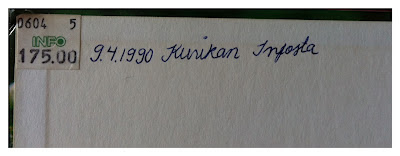 0604 5
INFO
175.00
9.4.1990 Kurikan Infosta